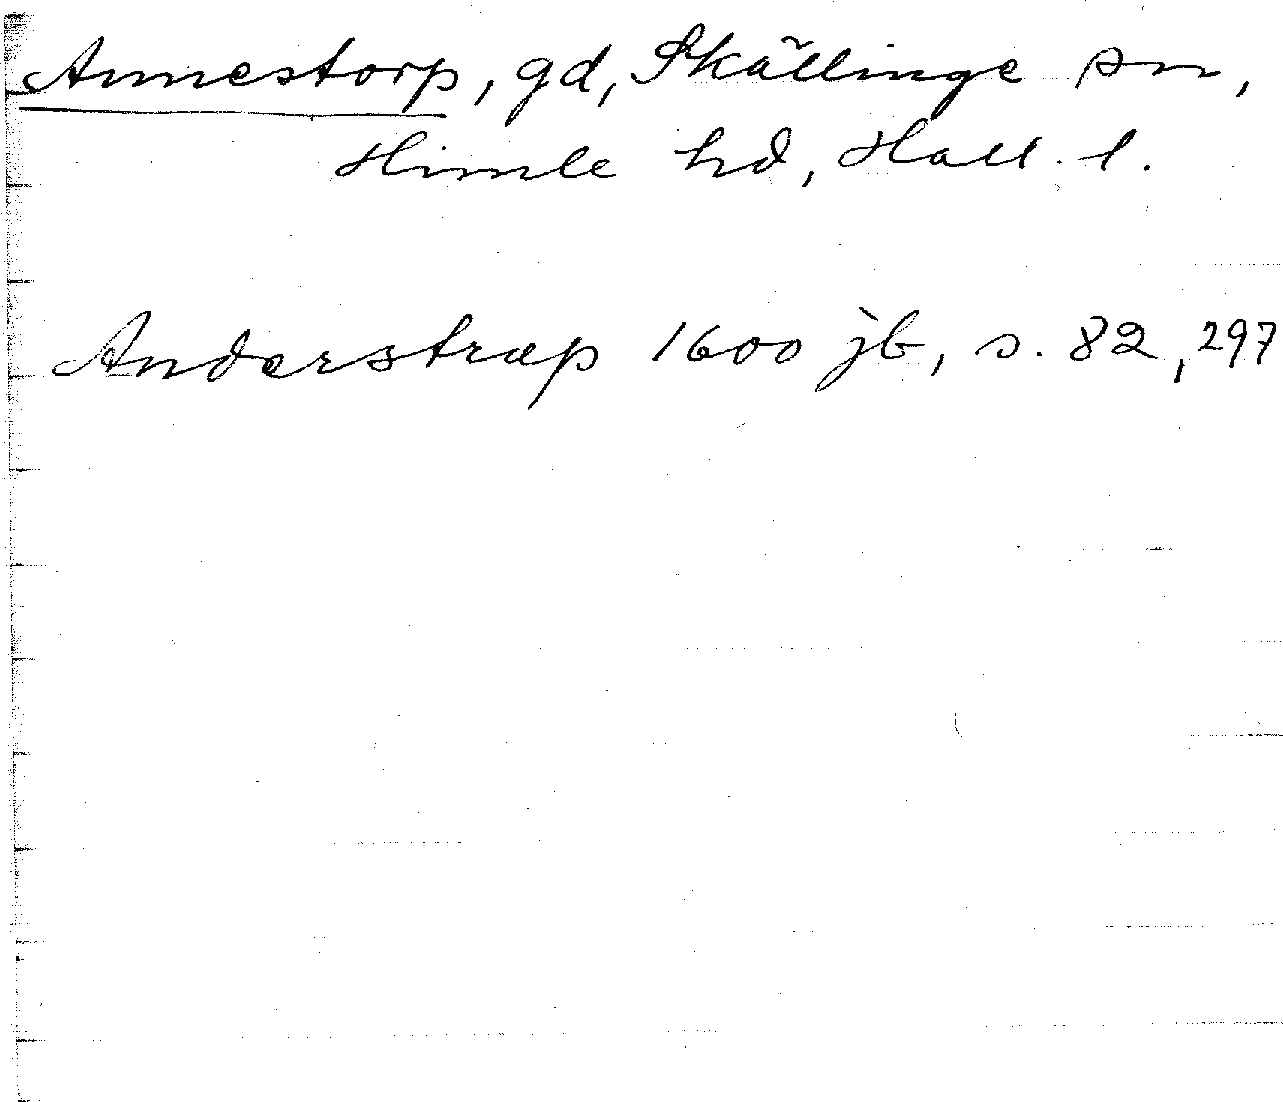 Annestorp, gd, Skällinge sn,
Himle hd, Hall. l.
Anderstræp 1600 jb, s. 82, 297